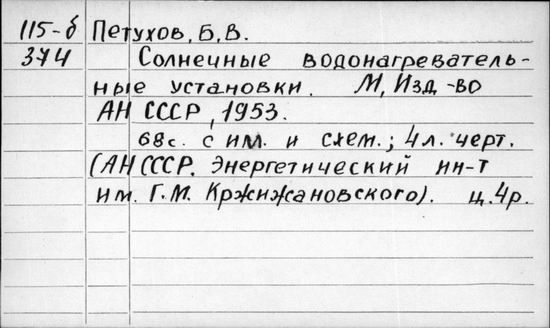 115-б Петухов, Б.В.
374 Солнечные водонагреватель-
ные установки. М, Изд-во
АН СССР, 1953.
68с. с им. и схем.; 4л. черт.
(АН СССР. Энергетический ин-т
им. Г.М. Кржижановского). ц.4р.